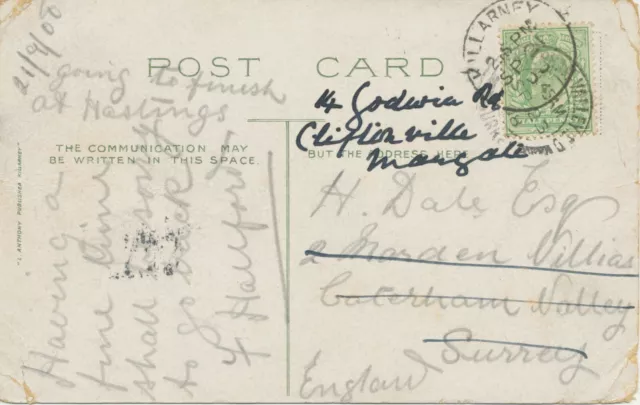 POST CARD
THE COMMUNICATION MAY
BE WRITTEN IN THIS SPACE.
BUT THE ADDRESS HERE
21/9/05
going to finish
at Hastings
Having a
fine time
shall be sorry
to go back
KILLARNEY
HALF PENNY
14 Godwin Rd
Cliftonville
Margate
H. Dale Esq
2 Marden Villias
Caterham Valley
Surrey
England